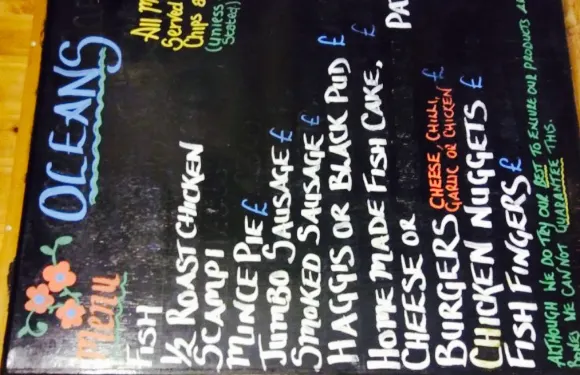 OCEANS
Menu
All M
Served
Chips &
(Unless
Stated)
Fish
½ Roast Chicken
Scampi
Mince Pie £
Jumbo Sausage £
Smoked Sausage £
Haggis or Black Pud £
Home Made Fish Cake, £
Cheese or Pat
Burgers Cheese, Chilli, £
Garlic or Chicken
Chicken Nuggets £
Fish Fingers £
Although we do try our best to ensure our products a
Bones we can not guarantee this.